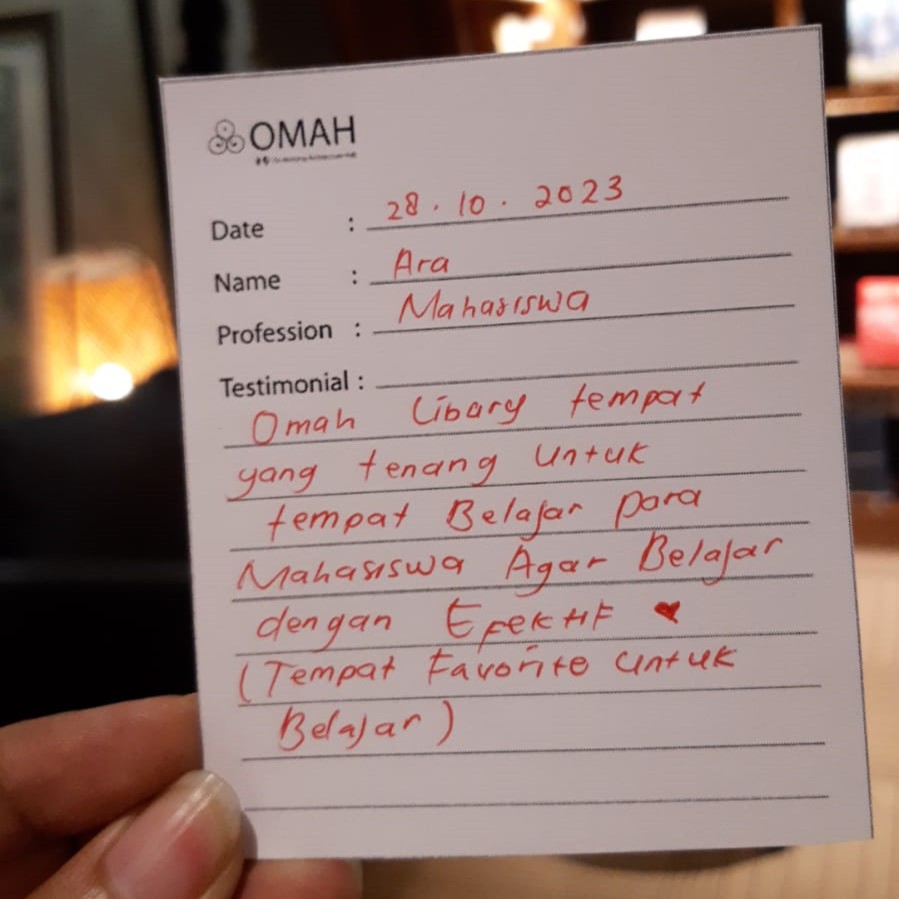 OMAH
Date : 28.10.2023
Name : Ara
Profession : Mahasiswa
Testimonial :
Omah Libary tempat
yang tenang untuk
tempat Belajar para
Mahasiswa Agar Belajar
dengan Efektif ♥
(Tempat Favorite untuk
Belajar)